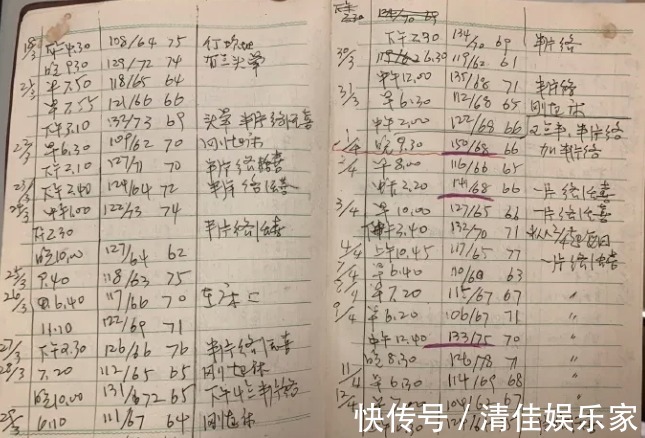 18/3 下午4.30 108/64 75
晚9.30 129/72 74 有三头晕
21/3 早7.50 118/65 64
早7.55 121/66 66
下午3.10 132/73 69 头晕 半片络活喜
22/3 早6.30 109/62 70 刚起床
下午2.10 127/71 70 半片络活喜
23/3 下午2.40 124/64 72 半片络活喜
25/3 中午1.00 122/73 74
下午2.30 半片络活喜
晚10.00 127/64 62
25/3 9.40 118/63 75
26/3 6.40 117/66 70
11.10 122/69 71
27/3 下午2.30 126/66 76 半片络活喜
28/3 7.20 112/65 65 刚起床
晚10.00 131/72 65 下午4点半片络
29/3 6.10 111/67 64 刚起床
下午2.30 134/70 69
下午2.30 134/70 69 半片络
30/3 6.30 119/62 61
31/3 中午12.00 135/68 71 半片络
早6.30 112/68 65 刚起床
中午2.00 122/68 66 半片络
1/4 晚9.30 150/68 66 加半片络
2/4 早8.00 116/66 65
中午2.20 141/68 66 一片络活喜
3/4 早10.00 127/65 66 一片络活喜
下午3.40 132/70 71 从2/4起每日
4/4 上午10.45 117/65 77 一片络活喜
7/4 早6.40 110/60 63
8/4 早7.20 115/67 67 〃
9/4 早6.20 106/67 71 〃
中午12.40 133/75 70 〃
晚8.30 126/78 71 〃
11/4 早6.30 114/69 68 〃
12/4 早7.00 108/62 67
快传号/清佳娱乐家